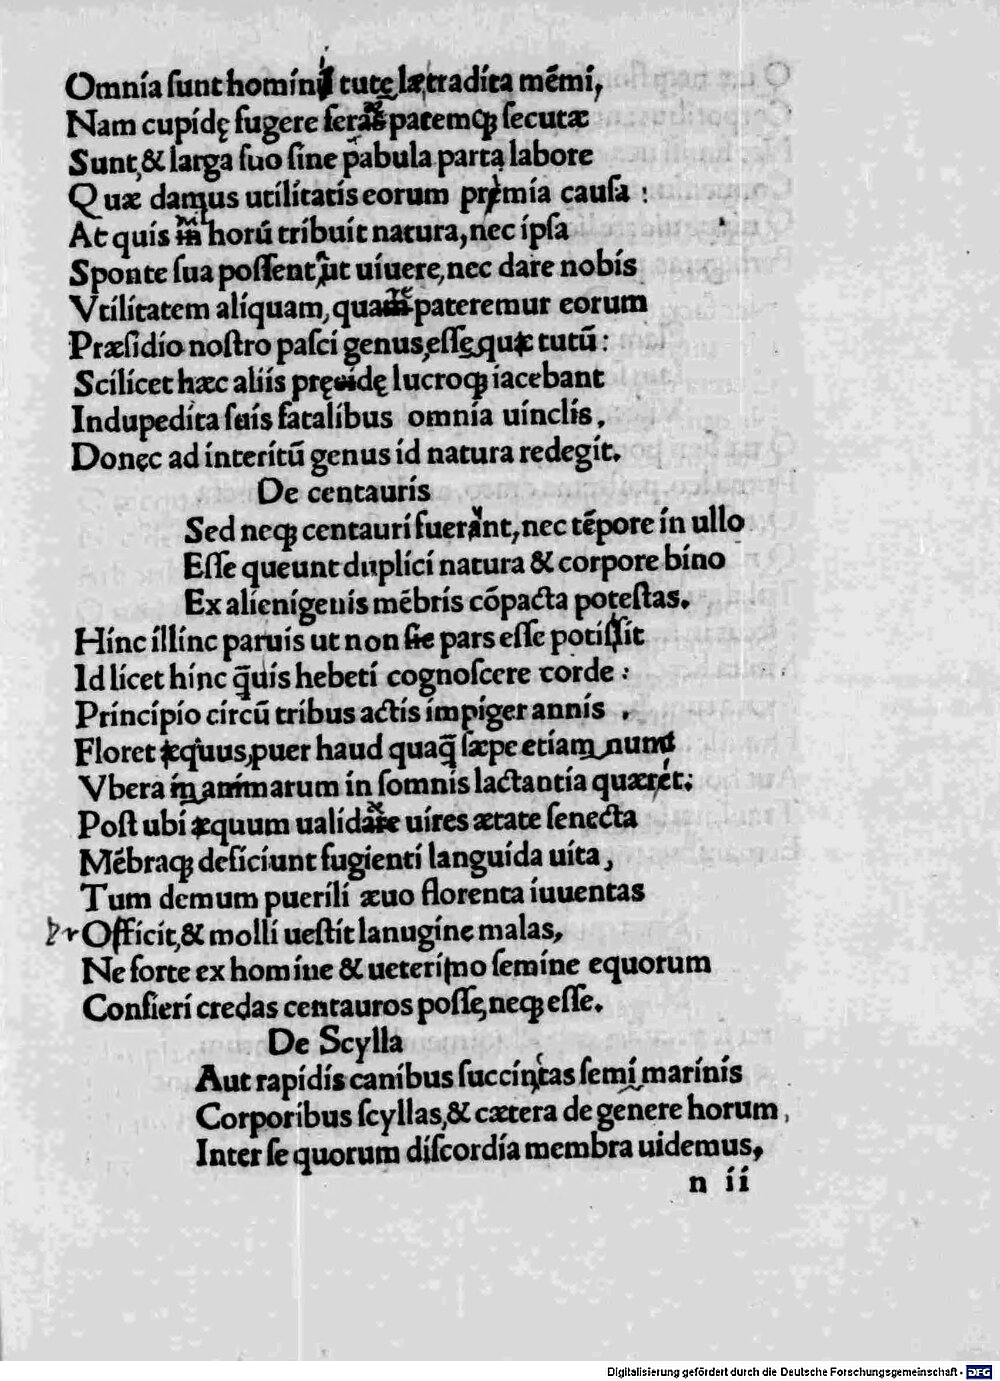 Omnia sunt hominū tutelæ tradita mēmi,
Nam cupidę fugere feras pacemqꝫ secutæ
Sunt, & larga suo sine pabula parta labore
Quæ damus utilitatis eorum premia causa :
At quis horū tribuit natura, nec ipsa
Sponte sua possent ut uiuere, nec dare nobis
Vtilitatem aliquam, quare pateremur eorum
Præsidio nostro pasci genus, esse, quæ tutū :
Scilicet hæc aliis prędę lucroqꝫ iacebant
Indupedita suis fatalibus omnia uinclis,
Donec ad interitū genus id natura redegit.
De centauris
Sed neqꝫ centauri fuerant, nec tēpore in ullo
Esse queunt duplici natura & corpore bino
Ex alienigenis mēbris cōpacta potestas.
Hinc illinc paruis ut non sie pars esse potissit
Id licet hinc q̄uis hebeti cognoscere corde :
Principio circū tribus actis impiger annis .
Floret æquus, puer haud quaq̄ sæpe etiam nunc
Vbera mammarum in somnis lactantia quæret:
Post ubi æquum ualidæ uires ætate senecta
Mēbraqꝫ deficiunt fugienti languida uita,
Tum demum puerili æuo florenta iuuentas
Officit, & molli uestit lanugine malas,
Ne forte ex homine & ueterino semine equorum
Confieri credas centauros posse, neqꝫ esse.
De Scylla
Aut rapidis canibus succinctas semi marinis
Corporibus scyllas, & cætera de genere horum,
Inter se quorum discordia membra uidemus,
n ii
Digitalisierung gefördert durch die Deutsche Forschungsgemeinschaft - DFG